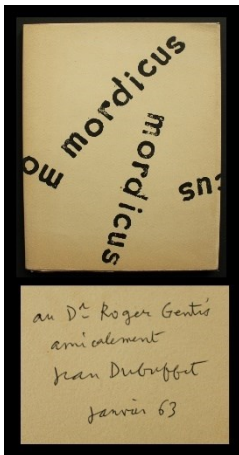 mordicus
mordicus
mo
cus
au Dr Roger Gentis
amicalement
Jean Dubuffet
janvier 63